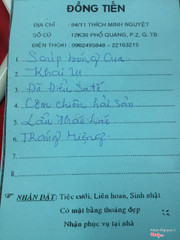 ĐỒNG TIẾN
ĐỊA CHỈ : 94/11 THÍCH MINH NGUYỆT
SỐ CŨ : 12K30 PHỔ QUANG, P.2, Q. TB
ĐIỆN THOẠI : 0982495848 – 22163215
1. Soup bóng Cua
2. Khai vị
3. Đà Điểu Saté
4. Cơm chiên hải sản
5. Lẩu Thác lác
6. Tráng Miệng
NHẬN ĐẶT: Tiệc cưới, Liên hoan, Sinh nhật
Có mặt bằng thoáng đẹp
Nhận phục vụ tại nhà